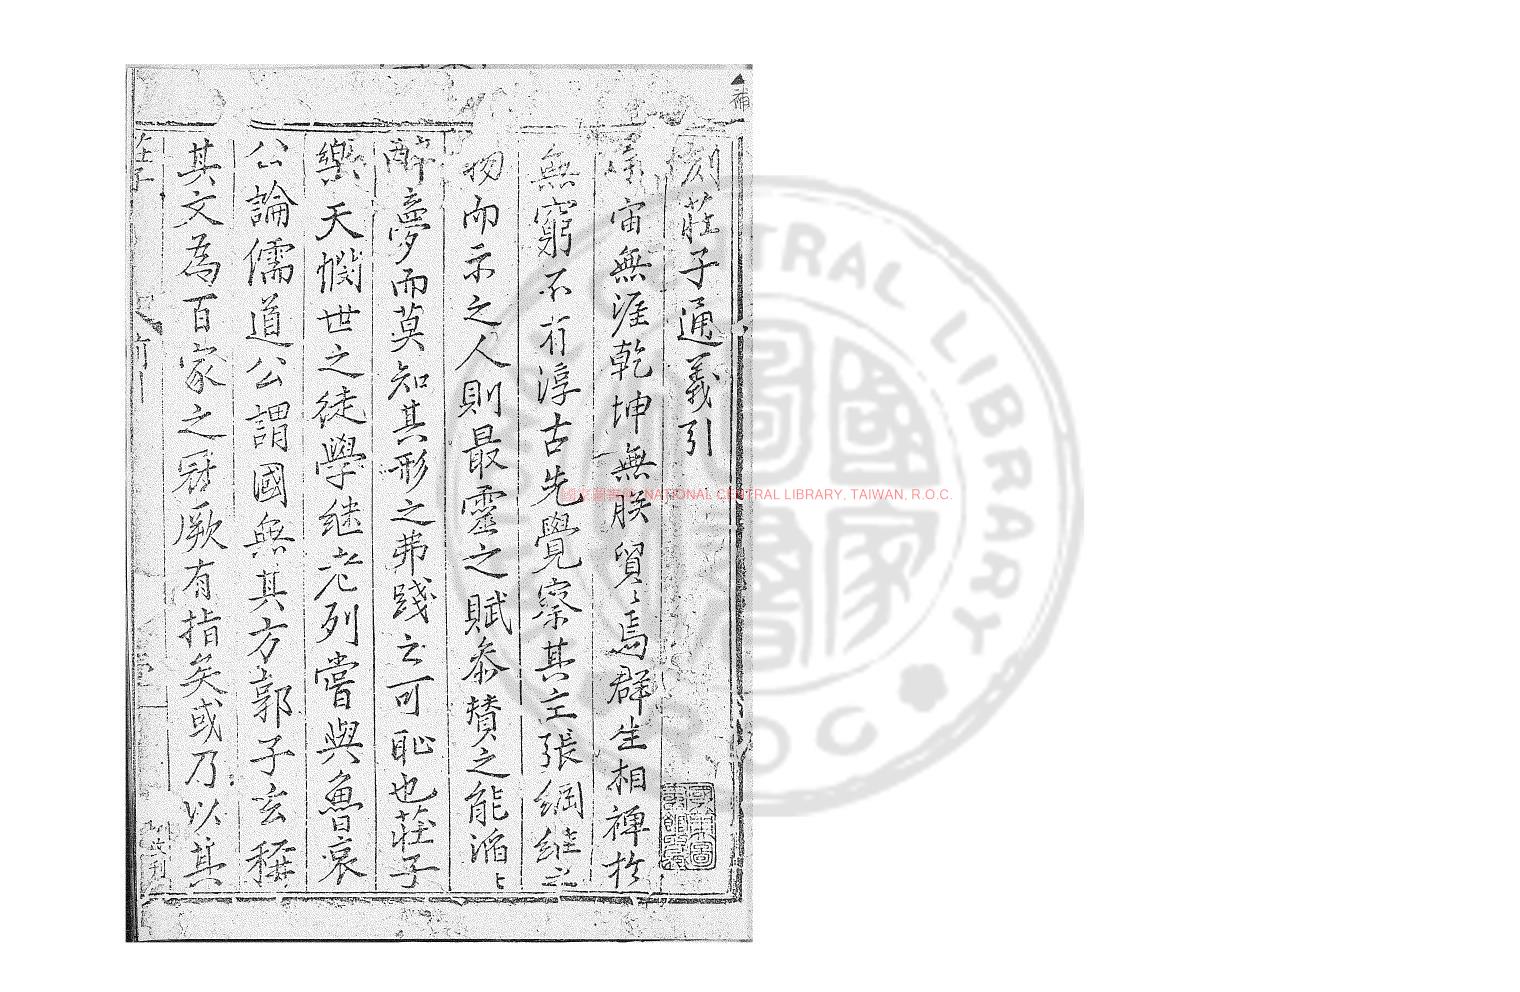 刻莊子通義引
宇宙無涯乾坤無朕貿〻焉群生相禪於
無窮不有淳古先覺察其主張綱維之
物而示之人則最靈之賦參賛之能滔〻
醉夢而莫知其形之弗踐之可恥也莊子
樂天憫世之徒學継老列嘗與魯哀
公論儒道公謂國無其方郭子玄稱
其文為百家之冠厥有指矣或乃以其
莊子
補
NATIONAL CENTRAL LIBRARY, TAIWAN, R.O.C.